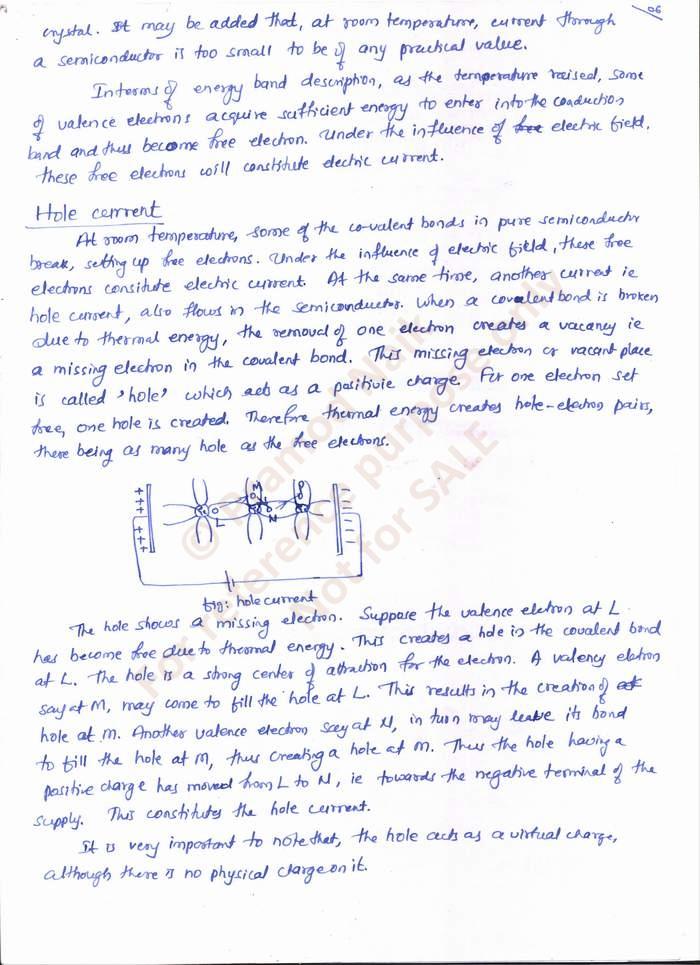 06
crystal. It may be added that, at room temperature, current through
a semiconductor is too small to be of any practical value.
Interms of energy band description, as the temperature raised, some
of valence electrons acquire sufficient energy to enter into the conduction
band and thus become free electron. Under the influence of free electric field,
these free electrons will constitute electric current.
Hole current
At room temperature, some of the co-valent bonds in pure semiconductor
break, setting up free electrons. Under the influence of electric field, these free
electrons consitute electric current. At the same time, another current ie
hole current, also flows in the semiconductor. When a covalent bond is broken
due to thermal energy, the removal of one electron creates a vacancy ie
a missing electron in the covalent bond. This missing electron or vacant place
is called 'hole' which acts as a positivie charge. For one electron set
free, one hole is created. Therefore thermal energy creates hole-electron pairs,
there being as many hole as the free electrons.
+++ +++ L M N P
fig: hole current
The hole shows a missing electron. Suppose the valence eletron at L
has become free due to thermal energy. This creates a hole in the covalent bond
at L. The hole is a strong center of attraction for the electron. A valency eletron
say at M, may come to fill the hole at L. This results in the creation of
hole at M. Another valence electron say at N, in turn may leave its bond
to fill the hole at M, thus creating a hole at M. Thus the hole having a
positive charge has moved from L to N, ie towards the negative terminal of the
supply. This constitutes the hole current.
It is very important to note that, the hole acts as a virtual charge,
although there is no physical charge on it.
© Pramod Naik
For reference purpose only
Not for SALE